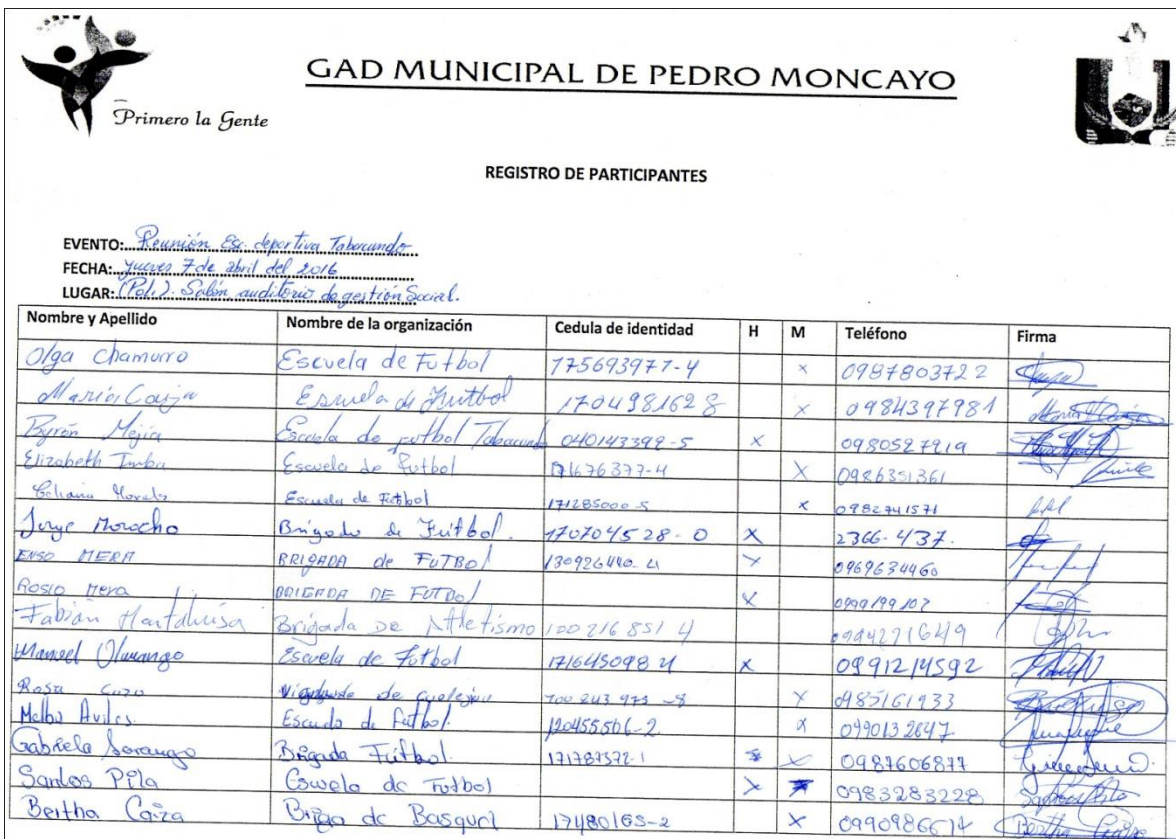 GAD MUNICIPAL DE PEDRO MONCAYO
Primero la Gente
REGISTRO DE PARTICIPANTES
EVENTO: Reunión Esc. deportiva Tabacundo
FECHA: jueves 7 de abril del 2016
LUGAR: (Poli.). Salón auditorio de gestión Social.
Nombre y Apellido Nombre de la organización Cedula de identidad H M Teléfono Firma
Olga Chamorro Escuela de Futbol 175693977-4 x 0987803722
María Escuela de Futbol 1704981628 x 0984397981
Byrón Mejía Escuela de futbol Tabacundo 040143399-5 x 0980527919
Elizabeth Imba Escuela de Futbol 171676377-4 x 0986351361
Morales Escuela de Fútbol 171285000-5 x 0982741571
Jorge Morocho Brigada de Fútbol. 170704528-0 x 2366-437.
ENSO MERA BRIGADA de FUTBOL 130926440-4 x 0969634460
Rosio Mera BRIGADA DE FUTBOL x 0999199102
Fabián Brigada De Atletismo 100216851 4 0994271649
Manuel Escuela de Futbol 171645098 4 x 0991214592
Rosa de 100 243 973 -8 x 0985161933
Melba Aviles. Escuela de futbol. 120455506-2 x 0990132647
Gabriela Sarango Brigada Fútbol. 171787572-1 x 0987606877
Santos Pila Escuela de Futbol x 0983283228
Bertha Caiza Briga de Basquet 17480165-2 x 0990986674